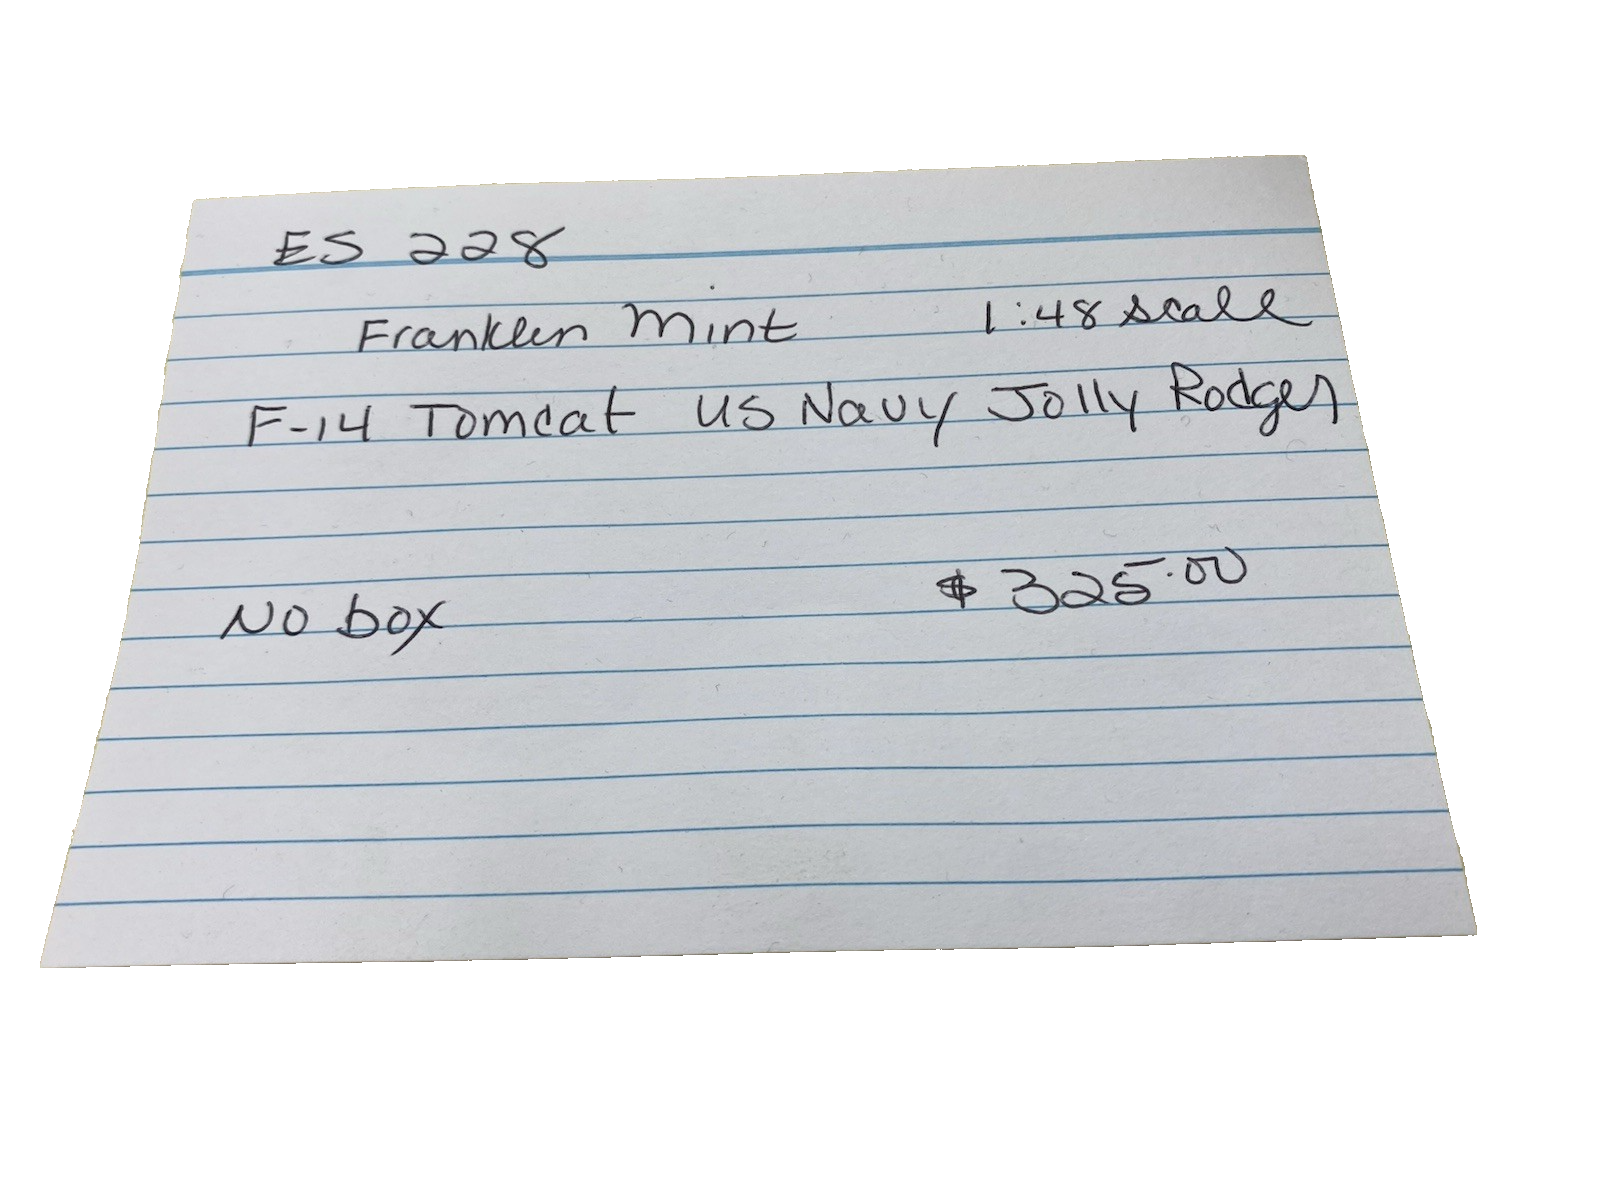 ES 228
Franklin Mint 1:48 scale
F-14 Tomcat US Navy Jolly Rodger
No box $325.00